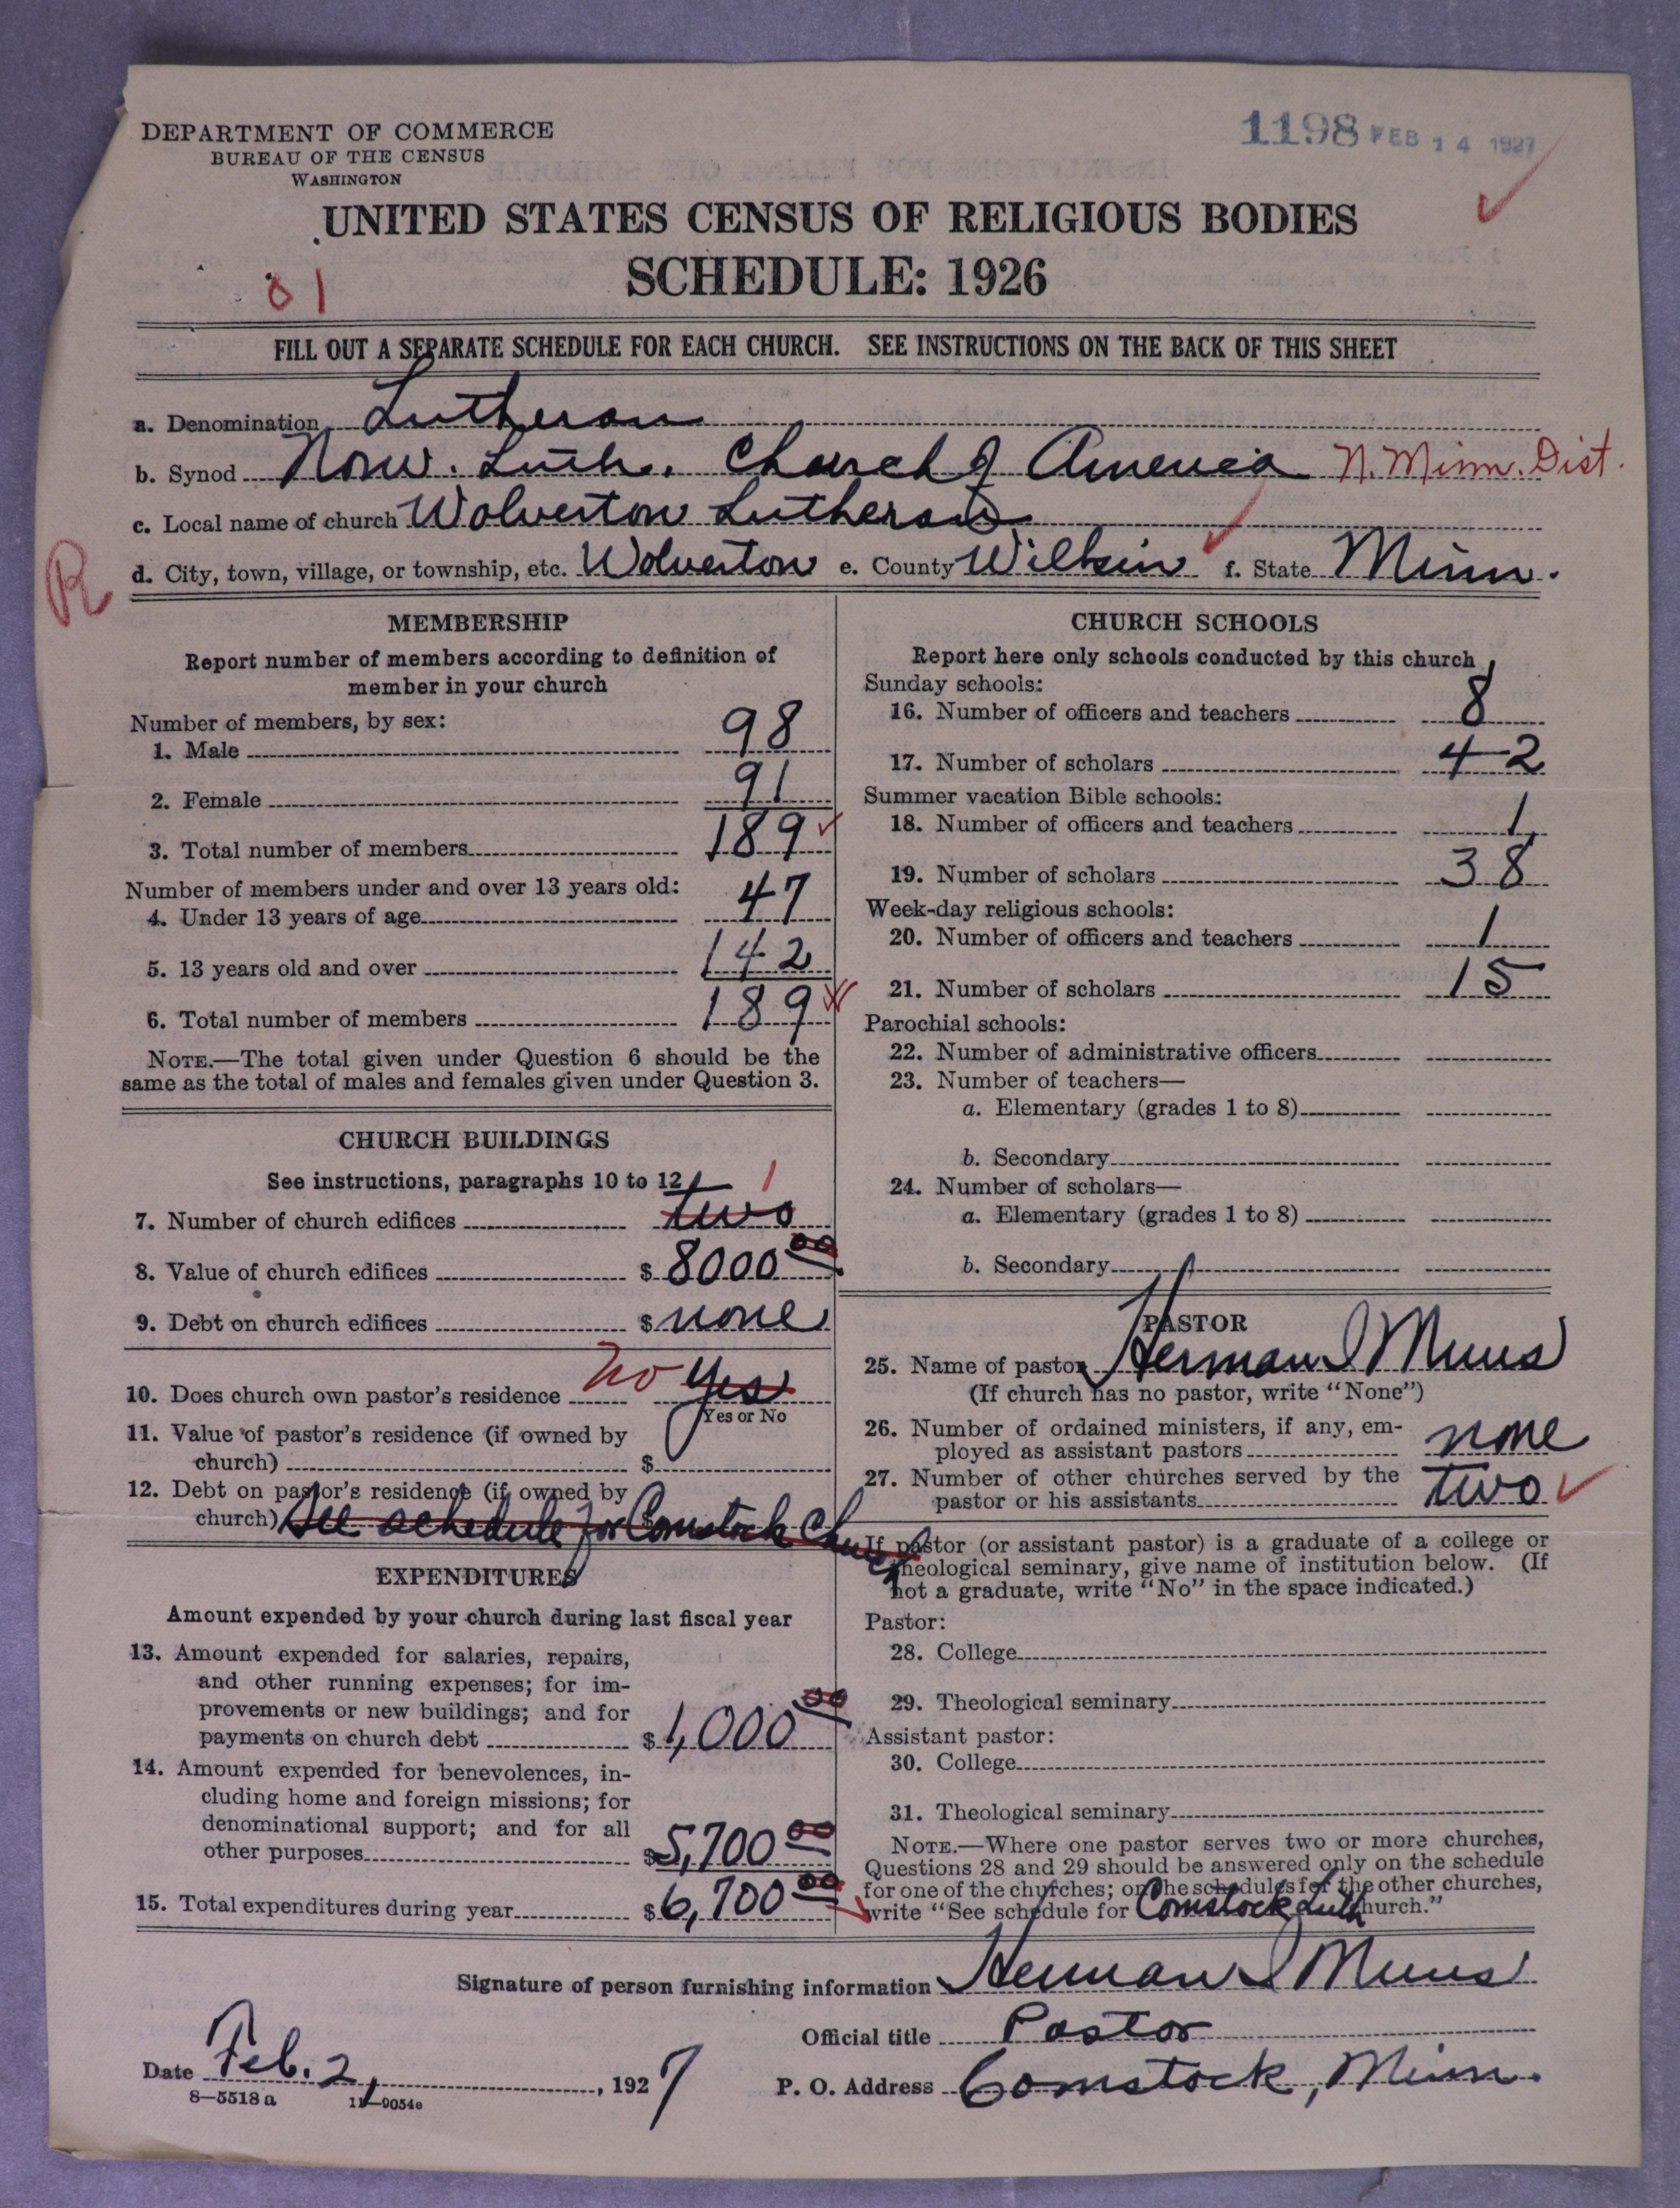 DEPARTMENT OF COMMERCE
BUREAU OF THE CENSUS
WASHINGTON
1198 FEB 14 1927
UNITED STATES CENSUS OF RELIGIOUS BODIES
SCHEDULE: 1926
01
FILL OUT A SEPARATE SCHEDULE FOR EACH CHURCH. SEE INSTRUCTIONS ON THE BACK OF THIS SHEET
a. Denomination Lutheran
b. Synod Norw. Luth. Church of America N. Minn. Dist.
c. Local name of church Wolverton Lutheran
d. City, town, village, or township, etc. Wolverton e. County Wilkin f. State Minn.
R
MEMBERSHIP
Report number of members according to definition of
member in your church
Number of members, by sex:
1. Male 98
2. Female 91
3. Total number of members 189
Number of members under and over 13 years old:
4. Under 13 years of age 47
5. 13 years old and over 142
6. Total number of members 189
NOTE.—The total given under Question 6 should be the
same as the total of males and females given under Question 3.
CHURCH BUILDINGS
See instructions, paragraphs 10 to 12
7. Number of church edifices two 1
8. Value of church edifices $ 8000 00
9. Debt on church edifices $ none
10. Does church own pastor's residence no Yes
Yes or No
11. Value of pastor's residence (if owned by
church) $
12. Debt on pastor's residence (if owned by
church) See schedule for Comstock Church
EXPENDITURES
Amount expended by your church during last fiscal year
13. Amount expended for salaries, repairs,
and other running expenses; for im-
provements or new buildings; and for
payments on church debt $ 1,000 00
14. Amount expended for benevolences, in-
cluding home and foreign missions; for
denominational support; and for all
other purposes $ 5,700 00
15. Total expenditures during year $ 6,700 00
CHURCH SCHOOLS
Report here only schools conducted by this church
Sunday schools:
16. Number of officers and teachers 8
17. Number of scholars 42
Summer vacation Bible schools:
18. Number of officers and teachers 1
19. Number of scholars 38
Week-day religious schools:
20. Number of officers and teachers 1
21. Number of scholars 15
Parochial schools:
22. Number of administrative officers
23. Number of teachers—
a. Elementary (grades 1 to 8)
b. Secondary
24. Number of scholars—
a. Elementary (grades 1 to 8)
b. Secondary
PASTOR
25. Name of pastor Herman J Muus
(If church has no pastor, write "None")
26. Number of ordained ministers, if any, em-
ployed as assistant pastors none
27. Number of other churches served by the
pastor or his assistants two
If pastor (or assistant pastor) is a graduate of a college or
theological seminary, give name of institution below. (If
not a graduate, write "No" in the space indicated.)
Pastor:
28. College
29. Theological seminary
Assistant pastor:
30. College
31. Theological seminary
NOTE.—Where one pastor serves two or more churches,
Questions 28 and 29 should be answered only on the schedule
for one of the churches; on the schedules for the other churches,
write "See schedule for Comstock Luth Church."
Signature of person furnishing information Herman J Muus
Official title Pastor
Date Feb. 2, 1927
P. O. Address Comstock, Minn.
8—5518 a 11—9054e